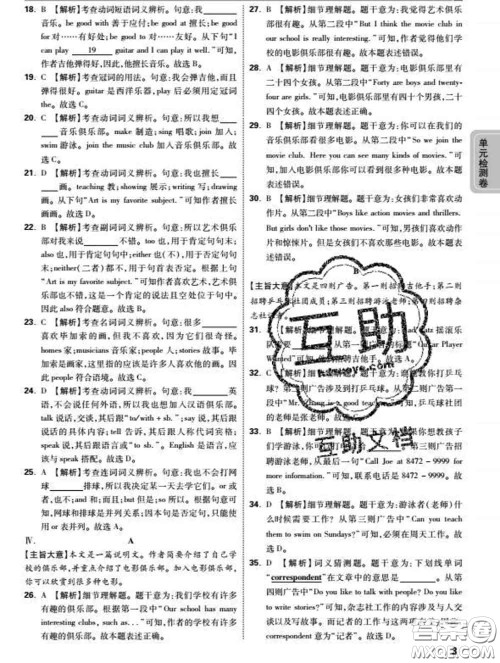 18. B 【解析】考查动词短语词义辨析。句意:我
。be good with 善于应付;be good at 擅长;be good
for 对……有好处;be good to 对……友好。从下文"I
can play 19 guitar and I can play it well."可
知,他能弹吉他。因此,他擅长音乐。故选 B。
19. C 【解析】考查冠词的用法。句意:我会弹吉他,而且
弹得很好。guitar 是西洋乐器, play 后必须用定冠词
the。故选 C。
20. C 【解析】考查动词词义辨析。句意:所以我想
音乐俱乐部。make 制造;sing 唱歌;join 加入;
swim 游泳。join the music club 加入音乐俱乐部。故
选 C。
21. D 【解析】考查动词词义辨析。句意:我也擅长
画画。teaching 教;showing 展示;writing 写;drawing
画。从下句"Art is my favorite subject."可知作者擅长
画画。故选 D。
22. B 【解析】考查副词词义辨析。句意:所以艺术俱乐
部对我来说 不错。too 也,用于肯定句句末;
also 也,用于肯定句句中;either 也(不),用于否定句
句末;neither(二者)都不,用于句首表否定。根据
"Art is my favorite subject."可知作者喜欢艺术,艺术俱
乐部也不错,这是一个肯定的说法且空处位于句中。
因此 also 符合题意。故选 B。
23. C 【解析】考查名词词义辨析。句意:很多
喜欢毕加索的画,但我不喜欢,因为它们很奇怪。
homes 家;musicians 音乐家;people 人;stories 故事。毕
加索是画家,这里指的应该是许多人喜欢他的画。因
此 people 符合语境。故选 C。
24. D 【解析】考查动词词义辨析。句意:我 英
语,不会说任何外语,所以我也想加入汉语俱乐部。
talk 说话,交谈,其后多跟"to/with sb. ";say 说,其后多跟
说话的具体内容;tell 告诉,其后跟人称代词宾格;
speak 说,其后跟语言或"to sb. "。English 是语言,应
该与 speak 搭配。故选 D。
25. A 【解析】考查连词词义辨析。句意:我也不会打网球
排球,所以我决定某一天去学它们。or 或
者,也不;and 和;but 但是;so 因此。学习的对象是网
球,网球和排球是并列关系;因本句是否定句,只能使
用 or 表并列。故选 A。
Ⅳ. A
【主旨大意】本文是一篇说明文。作者简要介绍了自己学
校的俱乐部,并重点介绍了电影俱乐部。加入电影俱乐部,
你可以欣赏到很多种电影。
26. A 【解析】细节理解题。题干意为:我们学校有许多
有趣的俱乐部。从第一段中"Our school has many
interesting clubs. "可知,我们学校有许多有趣的俱乐
部。故本题表述正确。
27. B 【解析】细节理解题。题干意为:我觉得艺术俱乐
部很有趣。从第二段中"But I think the movie club in
our school is really interesting. "可知,作者觉得他们学
校的电影俱乐部很有趣。故本题表述错误。
28. A 【解析】细节理解题。题干意为:电影俱乐部里有
二十四个女孩。从第二段中"Forty are boys and twenty-
four are girls. "可知,电影俱乐部里有四十个男孩,二
十四个女孩。故本题表述正确。
29. B 【解析】细节理解题。题干意为:你可以在我们的
音乐俱乐部看很多电影。从第二段中"So we join the
movie club. Here we can see many kinds of movies. "可
知,加入电影俱乐部你可以看到很多种电影。故本题
表述错误。
30. B 【解析】细节理解题。题干意为:女孩们非常喜欢动
作片。从第二段中"Boys like action movies and thrillers.
But girls don't like those movies. "可知,男孩们喜欢动作
片和惊悚片。但是女孩们不喜欢那些电影。故本题表
述错误。
B
互助
互助文档
33. B 【解析】细节理解题。题干意为:如果你想教孩子
们学游泳,你可以拨打 8472-9999。从第三则广告招
聘游泳老师,从最后一句"Call Joe at 8472-9999 for
more information. "可知,联系电话是 8472-9999。故
选 B。
34. D 【解析】细节理解题。题干意为:游泳者(老师)什
么时候需要工作?从第三则广告中"Can you teach
them to swim on Sundays?"可知,在周日工作。故
选 D。
35. D 【解析】词义猜测题。题干意为:下划线单词
"correspondent"在文章中的意思是 。从第四
则广告中"Do you like to talk with people? Do you like
to write stories?"可知,杂志社工作的内容涉及与人交
谈以及写故事。而记者的工作与这两项内容有关,因此
correspondent 意为"记者"。故选 D。
单元检测卷
3